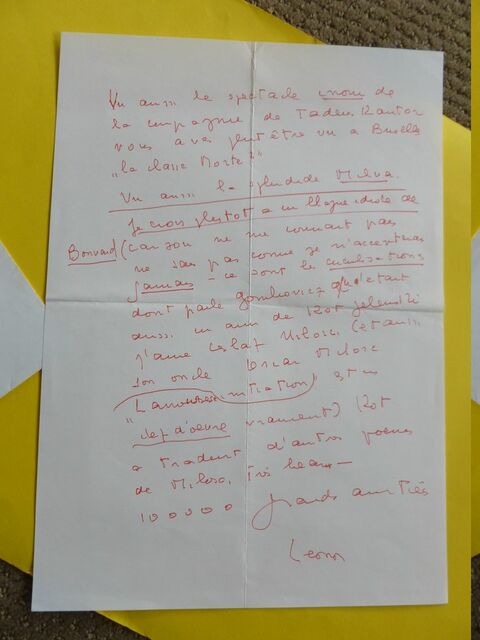 Vu aussi le spectacle inouï de
la compagnie de Tadeus Kantor
vous avez peut être vu a Bruxelles
"la classe Morte"
Vu aussi la splendide Milva.
Je crois plustot a un blague idiote de
Bonvard (car on ne me connait pas
ne sais pas comme je n'accepterais
Jamais — ce sont les cuculisations
dont parle Gombovicz qu'etant
aussi un ami de Kot Jelenski
j'aime Ceslaf Milosc (et aussi
son oncle Oscar Milosc
"L'amoureuse initiation" est un
chef d'oeuvre vraiment) Kot
a traduit d'autres poemes
de Milosc, très beaux —
100000 grands amitiés
Leonor